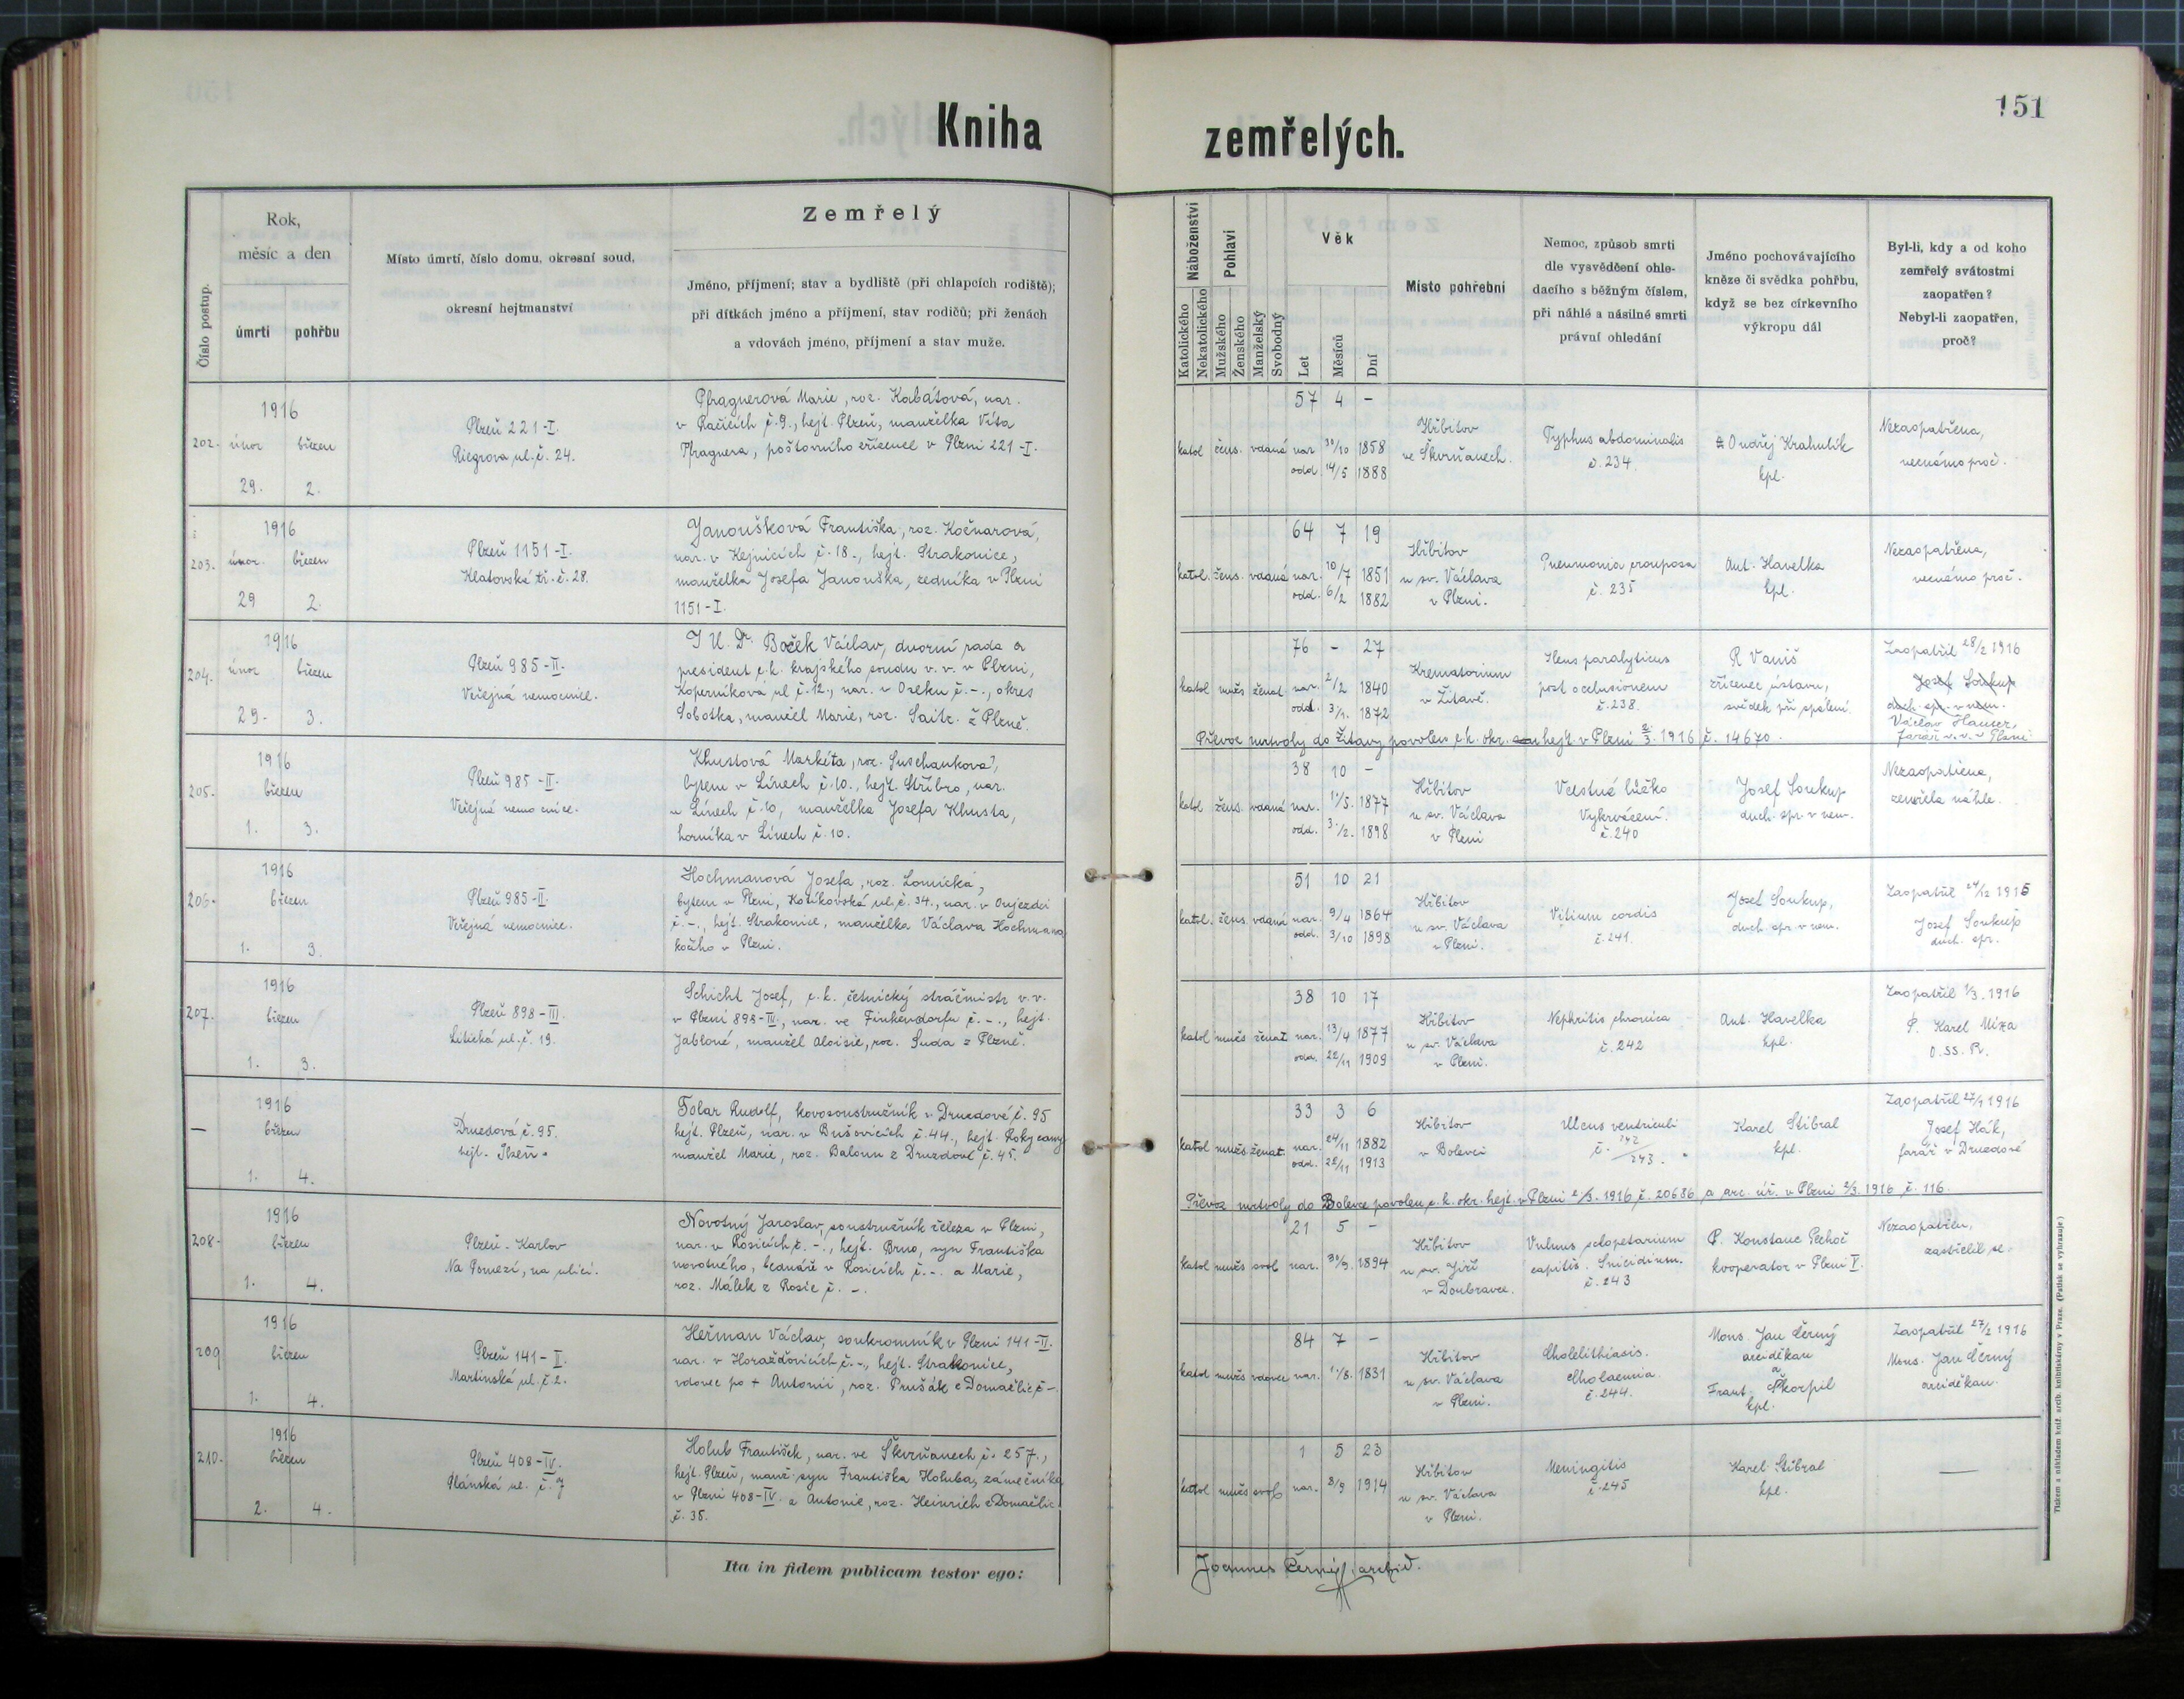 151
Kniha zemřelých.
Číslo postup.
Rok,
měsíc a den
úmrtí
pohřbu
Místo úmrtí, číslo domu, okresní soud,
okresní hejtmanství
Zemřelý
Jméno, příjmení; stav a bydliště (při chlapcích rodiště);
při dítkách jméno a příjmení, stav rodičů; při ženách
a vdovách jméno, příjmení a stav muže.
Náboženství
Katolického
Nekatolického
Pohlaví
Mužského
Ženského
Manželský
Svobodný
Věk
Let
Měsíců
Dní
Místo pohřební
Nemoc, způsob smrti
dle vysvědčení ohle-
dacího s běžným číslem,
při náhlé a násilné smrti
právní ohledání
Jméno pochovávajícího
kněze či svědka pohřbu,
když se bez církevního
výkropu dál
Byl-li, kdy a od koho
zemřelý svátostmi
zaopatřen?
Nebyl-li zaopatřen,
proč?
202.
1916
únor březen
29. 2.
Plzeň 221-I.
Riegrova ul. č. 24.
Pfragnerová Marie, roz. Kabátová, nar.
v Račicích č. 9., hejt. Plzeň, manželka Víta
Pfragnera, poštovního zřízence v Plzni 221-I.
57 4 -
katol žens. vdaná nar. 30/10 1858
odd. 14/5 1888
Hřbitov
ve Škvrňanech.
Typhus abdominalis
č. 234.
Ondřej Krahulík
kpl.
Nezaopatřena,
neznámo proč.
203.
1916
únor. březen
29 2.
Plzeň 1151-I.
Klatovská tř. č. 28.
Janoušková Františka, roz. Kočnarová,
nar. v Kejnicích č. 18., hejt. Strakonice,
manželka Josefa Janouška, zedníka v Plzni
1151-I.
64 7 19
katol. žens. vdaná nar. 10/7 1851
odd. 6/2 1882
Hřbitov
u sv. Václava
v Plzni.
Pneumonia crouposa
č. 235
Ant. Havelka
kpl.
Nezaopatřena,
neznámo proč.
204.
1916
únor březen
29. 3.
Plzeň 985-II.
Veřejná nemocnice.
J. U. Dr. Boček Václav, dvorní rada a
president c. k. krajského soudu v. v. v Plzni,
Koperníkova ul. č. 12., nar. v Oseku č. -., okres
Sobotka, manžel Marie, roz. Saitz. z Plzně.
76 - 27
katol muž. ženat nar. 2/2 1840
odd. 3/1. 1872
Krematorium
v Žitavě.
Ileus paralyticus
post occlusionem
č. 238.
R Vaniš
zřízenec ústavu,
svědek při spálení.
Zaopatřil 28/2 1916
Josef Soukup
duch. spr. v nem.
Václav Hauser,
farář v. v. v Plzni
Převoz mrtvoly do Žitavy povolen c. k. okr. hejt. v Plzni 2/3. 1916 č. 14670.
205.
1916
březen
1. 3.
Plzeň 985-II.
Veřejná nemocnice.
Khustová Markéta, roz. Suschanková,
bytem v Línech č. 10., hejt. Stříbro, nar.
v Línech č. 10, manželka Josefa Khusta,
horníka v Línech č. 10.
38 10 -
katol žens. vdaná nar. 1/5. 1877
odd. 3/2. 1898
Hřbitov
u sv. Václava
v Plzni
Vcestné lůžko
Vykrvácení.
č. 240
Josef Soukup
duch. spr. v nem.
Nezaopatřena,
zemřela náhle.
206.
1916
březen
1. 3.
Plzeň 985-II.
Veřejná nemocnice.
Hochmanová Josefa, roz. Lomická,
bytem v Plzni, Kotíkovská ul. č. 34., nar. v Oujezdci
č. -., hejt. Strakonice, manželka Václava Hochmana
kočího v Plzni.
51 10 21
katol. žens. vdaná nar. 9/4 1864
odd. 3/10 1898
Hřbitov
u sv. Václava
v Plzni.
Vitium cordis
č. 241.
Josef Soukup,
duch. spr. v nem.
Zaopatřil 24/12 1915
Josef Soukup
duch. spr.
207.
1916
březen
1. 3.
Plzeň 898-III.
Litická ul. č. 19.
Schicht Josef, c. k. četnický strážmistr v. v.
v Plzni 898-III., nar. ve Finkendorfu č. -., hejt.
Jablonné, manžel Aloisie, roz. Suda z Plzně.
38 10 17
katol muž. ženat nar. 13/4 1877
odd. 22/11 1909
Hřbitov
u sv. Václava
v Plzni.
Nephritis chronica
č. 242
Ant. Havelka
kpl.
Zaopatřil 1/3. 1916
P. Karel Míza
O. SS. R.
—
1916
březen
1. 4.
Druzdová č. 95.
hejt. Plzeň.
Tolar Rudolf, kovosoustružník v Druzdové č. 95
hejt. Plzeň, nar. v Bušovicích č. 44., hejt. Rokycany
manžel Marie, roz. Baloun z Druzdové č. 45.
33 3 6
katol muž. ženat nar. 24/11 1882
odd. 22/11 1913
Hřbitov
v Bolevci
Ulcus ventriculi
č. 242/243.
Karel Stibral
kpl.
Zaopatřil 27/1 1916
Josef Hák,
farář v Druzdové
Převoz mrtvoly do Bolevce povolen c. k. okr. hejt. v Plzni 2/3. 1916 č. 20686 a arc. úř. v Plzni 2/3. 1916 č. 116.
208.
1916
březen
1. 4.
Plzeň - Karlov
Na Pomezí, na ulici.
Novotný Jaroslav, soustružník železa v Plzni,
nar. v Rosicích č. -., hejt. Brno, syn Františka
Novotného, bednáře v Rosicích č. -. a Marie,
roz. Málek z Rosic č. -.
21 5 -
katol muž. svob nar. 30/9. 1894
Hřbitov
u sv. Jiří
v Doubravce.
Vulnus sclopetarium
capitis. Suicidium.
č. 243
P. Konstanc Pechoč
kooperator v Plzni V.
Nezaopatřen,
zastřelil se.
209
1916
březen
1. 4.
Plzeň 141-I.
Martinská ul. č. 2.
Heřman Václav, soukromník v Plzni 141-II.
nar. v Horažďovicích č. -., hejt. Strakonice,
vdovec po + Antonii, roz. Prušák z Domažlic č -.
84 7 -
katol muž. vdovec nar. 1/8. 1831
Hřbitov
u sv. Václava
v Plzni.
Cholelithiasis.
Cholaemia.
č. 244.
Mons. Jan Černý
arciděkan
a
Frant. Škorpil
kpl.
Zaopatřil 27/2 1916
Mons. Jan Černý
arciděkan.
210.
1916
březen
2. 4.
Plzeň 408-IV.
Plánská ul. č. 7
Holub František, nar. ve Škvrňanech č. 257.,
hejt. Plzeň, manž. syn Františka Holuba, zámečníka
v Plzni 408-IV. a Antonie, roz. Heinrich z Domažlic
č. 35.
1 5 23
katol muž. svob nar. 8/9 1914
Hřbitov
u sv. Václava
v Plzni.
Meningitis
č. 245
Karel Stibral
kpl.
—
Ita in fidem publicam testor ego:
Joannes Černý, archid.
Tiskem a nákladem kníž. arcib. knihtiskárny v Praze. (Patisk se vyhrazuje)